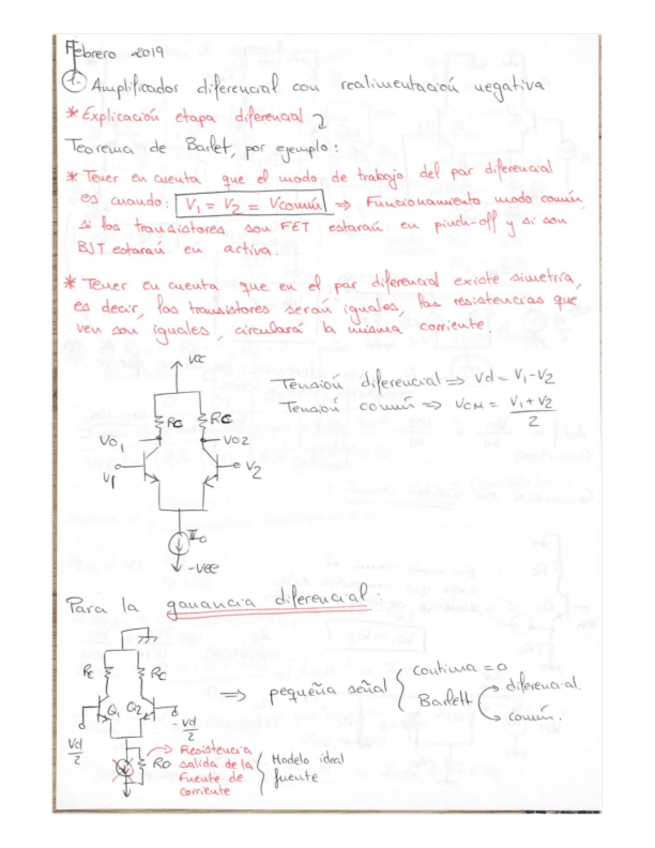 Febrero 2019
1.- Amplificador diferencial con realimentación negativa
* Explicación etapa diferencial
Teorema de Barlet, por ejemplo:
* Tener en cuenta que el modo de trabajo del par diferencial
es cuando: V1 = V2 = Vcomún ⇒ Funcionamiento modo común,
si los transistores son FET estarán en pinch-off y si son
BJT estarán en activa.
* Tener en cuenta que en el par diferencial existe simetría,
es decir, los transistores serán iguales, las resistencias que
ven son iguales, circulará la misma corriente.
VCC
Tensión diferencial ⇒ Vd = V1-V2
Tensión común ⇒ VCM = (V1+V2)/2
RC RC
VO1 VO2
V1 V2
Io
-VEE
Para la ganancia diferencial:
RC RC
⇒ pequeña señal { continua = 0
Barlett → diferencial.
→ común.
Q1 Q2
Vd/2 -Vd/2
RO
Resistencia
salida de la
fuente de
corriente
{ Modelo ideal
fuente